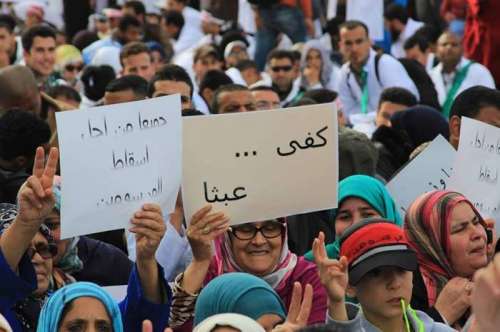 جميعا من أجل
اسقاط
المرسومين
كفى ...
عبثا